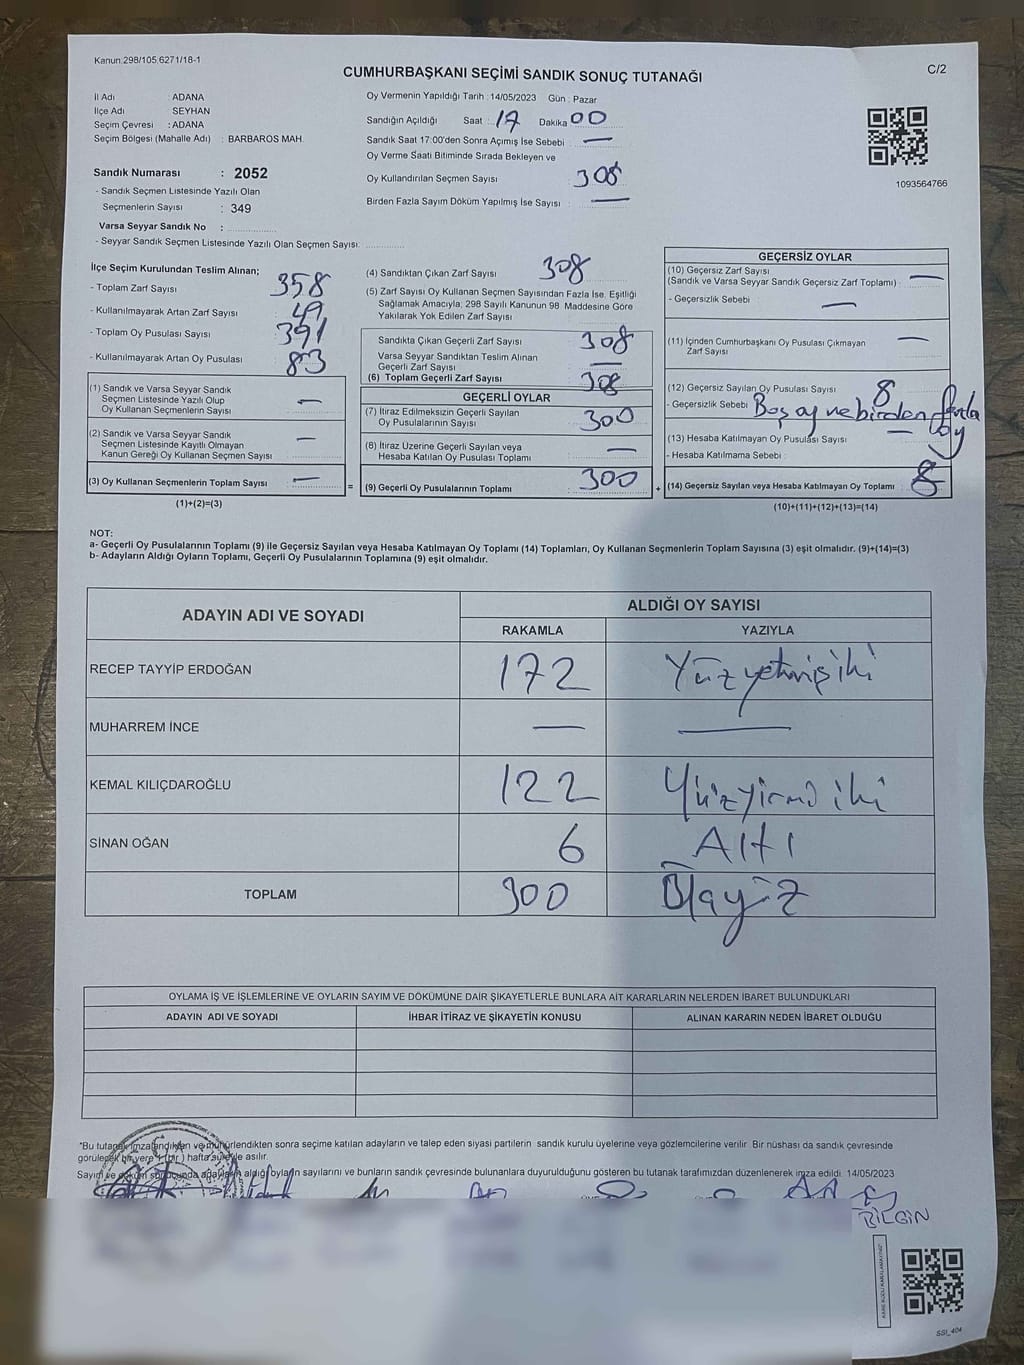 Kanun:298/105,6271/18-1
C/2
CUMHURBAŞKANI SEÇİMİ SANDIK SONUÇ TUTANAĞI
İl Adı : ADANA
İlçe Adı : SEYHAN
Seçim Çevresi : ADANA
Seçim Bölgesi (Mahalle Adı) : BARBAROS MAH.
Sandık Numarası : 2052
- Sandık Seçmen Listesinde Yazılı Olan
Seçmenlerin Sayısı : 349
Varsa Seyyar Sandık No :
- Seyyar Sandık Seçmen Listesinde Yazılı Olan Seçmen Sayısı:
Oy Vermenin Yapıldığı Tarih : 14/05/2023 Gün : Pazar
Sandığın Açıldığı Saat : 17 Dakika 00
Sandık Saat 17:00'den Sonra Açımış İse Sebebi : —
Oy Verme Saati Bitiminde Sırada Bekleyen ve
Oy Kullandırılan Seçmen Sayısı 308
Birden Fazla Sayım Döküm Yapılmış İse Sayısı : —
1093564766
İlçe Seçim Kurulundan Teslim Alınan;
- Toplam Zarf Sayısı 358
- Kullanılmayarak Artan Zarf Sayısı : 49
- Toplam Oy Pusulası Sayısı : 391
- Kullanılmayarak Artan Oy Pusulası : 83
(1) Sandık ve Varsa Seyyar Sandık
Seçmen Listesinde Yazılı Olup
Oy Kullanan Seçmenlerin Sayısı —
(2) Sandık ve Varsa Seyyar Sandık
Seçmen Listesinde Kayıtlı Olmayan
Kanun Gereği Oy Kullanan Seçmen Sayısı —
(3) Oy Kullanan Seçmenlerin Toplam Sayısı : —
(1)+(2)=(3)
(4) Sandıktan Çıkan Zarf Sayısı 308
(5) Zarf Sayısı Oy Kullanan Seçmen Sayısından Fazla İse, Eşitliği
Sağlamak Amacıyla; 298 Sayılı Kanunun 98. Maddesine Göre
Yakılarak Yok Edilen Zarf Sayısı :
Sandıkta Çıkan Geçerli Zarf Sayısı : 308
Varsa Seyyar Sandıktan Teslim Alınan
Geçerli Zarf Sayısı : —
(6) Toplam Geçerli Zarf Sayısı : 308
GEÇERLİ OYLAR
(7) İtiraz Edilmeksizin Geçerli Sayılan
Oy Pusulalarının Sayısı : 300
(8) İtiraz Üzerine Geçerli Sayılan veya
Hesaba Katılan Oy Pusulası Toplamı : —
= (9) Geçerli Oy Pusulalarının Toplamı : 300
GEÇERSİZ OYLAR
(10) Geçersiz Zarf Sayısı
(Sandık ve Varsa Seyyar Sandık Geçersiz Zarf Toplamı) : —
- Geçersizlik Sebebi : —
(11) İçinden Cumhurbaşkanı Oy Pusulası Çıkmayan
Zarf Sayısı —
(12) Geçersiz Sayılan Oy Pusulası Sayısı : 8
- Geçersizlik Sebebi : Boş oy ve birden fazla oy
(13) Hesaba Katılmayan Oy Pusulası Sayısı : —
- Hesaba Katılmama Sebebi :
+ (14) Geçersiz Sayılan veya Hesaba Katılmayan Oy Toplamı : 8
(10)+(11)+(12)+(13)=(14)
NOT:
a- Geçerli Oy Pusulalarının Toplamı (9) ile Geçersiz Sayılan veya Hesaba Katılmayan Oy Toplamı (14) Toplamları, Oy Kullanan Seçmenlerin Toplam Sayısına (3) eşit olmalıdır. (9)+(14)=(3)
b- Adayların Aldığı Oyların Toplamı, Geçerli Oy Pusulalarının Toplamına (9) eşit olmalıdır.
ADAYIN ADI VE SOYADI
ALDIĞI OY SAYISI
RAKAMLA YAZIYLA
RECEP TAYYİP ERDOĞAN 172 Yüzyetmişiki
MUHARREM İNCE — —
KEMAL KILIÇDAROĞLU 122 Yüzyirmi iki
SİNAN OĞAN 6 Altı
TOPLAM 300
OYLAMA İŞ VE İŞLEMLERİNE VE OYLARIN SAYIM VE DÖKÜMÜNE DAİR ŞİKAYETLERLE BUNLARA AİT KARARLARIN NELERDEN İBARET BULUNDUKLARI
ADAYIN ADI VE SOYADI İHBAR İTİRAZ VE ŞİKAYETİN KONUSU ALINAN KARARIN NEDEN İBARET OLDUĞU
*Bu tutanak imzalandıktan ve mühürlendikten sonra seçime katılan adayların ve talep eden siyasi partilerin sandık kurulu üyelerine veya gözlemcilerine verilir. Bir nüshası da sandık çevresinde
görülecek bir yere 1 (bir) hafta süreyle asılır.
Sayım ve döküm sonucunda adayların aldığı oyların sayılarını ve bunların sandık çevresinde bulunanlara duyurulduğunu gösteren bu tutanak tarafımızdan düzenlenerek imza edildi. 14/05/2023
BİLGİN
SSI_404